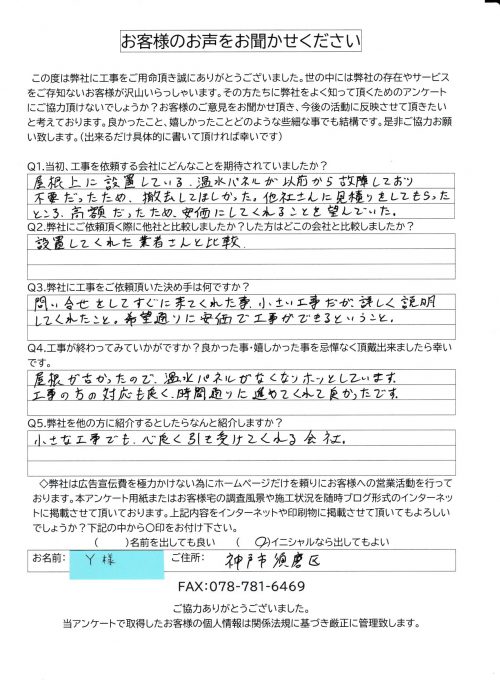 お客様のお声をお聞かせください
この度は弊社に工事をご用命頂き誠にありがとうございました。世の中には弊社の存在やサービス
をご存知ないお客様が沢山いらっしゃいます。その方たちに弊社をよく知って頂くためのアンケート
にご協力頂けないでしょうか？お客様のご意見をお聞かせ頂き、今後の活動に反映させて頂きたい
と考えております。良かったこと、嬉しかったことどのような些細な事でも結構です。是非ご協力お願
い致します。（出来るだけ具体的に書いて頂ければ幸いです）
Q1.当初、工事を依頼する会社にどんなことを期待されていましたか？
屋根上に設置している、温水パネルが以前から故障しており
不要だったため、撤去してほしかった。他社さんに見積りをしてもらった
ところ、高額だったため、安価にしてくれることを望んでいた。
Q2.弊社にご依頼頂く際に他社と比較しましたか？した方はどこの会社と比較しましたか？
設置してくれた業者さんと比較、
Q3.弊社に工事をご依頼頂いた決め手は何ですか？
問い合せをしてすぐに来てくれた事、小さい工事だが、詳しく説明
してくれたこと。希望通りに安価で工事ができるということ。
Q4.工事が終わってみていかがですか？良かった事・嬉しかった事を忌憚なく頂戴出来ましたら幸い
です。
屋根が古かったので、温水パネルがなくなりホッとしています。
工事の方の対応も良く、時間通りに進めてくれて良かったです。
Q5.弊社を他の方に紹介するとしたらなんと紹介しますか？
小さな工事でも、心良く引き受けてくれる会社。
◇弊社は広告宣伝費を極力かけない為にホームページだけを頼りにお客様への営業活動を行って
おります。本アンケート用紙またはお客様宅の調査風景や施工状況を随時ブログ形式のインターネッ
トに掲載させて頂いております。上記内容をインターネットや印刷物に掲載させて頂いてもよろしい
でしょうか？下記の中から〇印をお付け下さい。
（　）名前を出しても良い　（〇）イニシャルなら出してもよい
お名前: Y様 ご住所: 神戸市須磨区
FAX:078-781-6469
ご協力ありがとうございました。
当アンケートで取得したお客様の個人情報は関係法規に基づき厳正に管理致します。